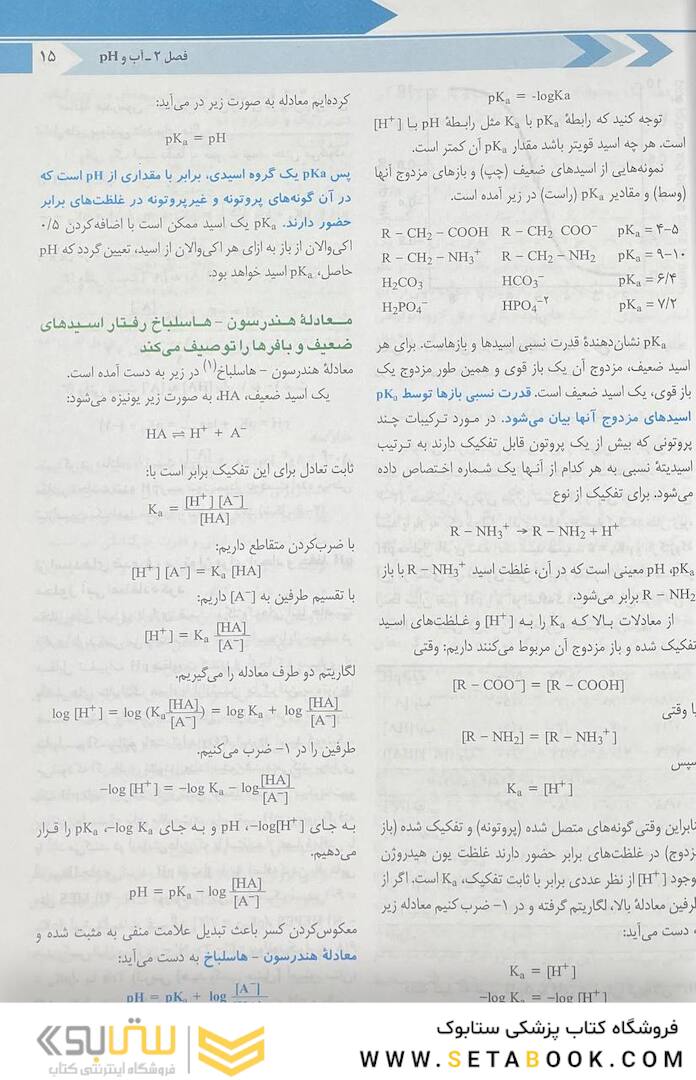 ۱۵ فصل ۲ ـ آب و pH
pKa = -logKa
توجه کنید که رابطهٔ pKa با Ka مثل رابطهٔ pH با [H⁺]
است. هر چه اسید قویتر باشد مقدار pKa آن کمتر است.
نمونه‌هایی از اسیدهای ضعیف (چپ) و بازهای مزدوج آنها
(وسط) و مقادیر pKa (راست) در زیر آمده است.
R – CH₂ – COOH R – CH₂ COO⁻ pKa = ۴-۵
R – CH₂ – NH₃⁺ R – CH₂ – NH₂ pKa = ۹-۱۰
H₂CO₃ HCO₃⁻ pKa = ۶/۴
H₂PO₄⁻ HPO₄⁻² pKa = ۷/۲
pKa نشان‌دهندهٔ قدرت نسبی اسیدها و بازهاست. برای هر
اسید ضعیف، مزدوج آن یک باز قوی و همین طور مزدوج یک
باز قوی، یک اسید ضعیف است. قدرت نسبی بازها توسط pKa
اسیدهای مزدوج آنها بیان می‌شود. در مورد ترکیبات چند
پروتونی که بیش از یک پروتون قابل تفکیک دارند به ترتیب
اسیدیتهٔ نسبی به هر کدام از آنها یک شماره اختصاص داده
می‌شود. برای تفکیک از نوع
R – NH₃⁺ → R – NH₂ + H⁺
pKa، pH معینی است که در آن، غلظت اسید R – NH₃⁺ با باز
R – NH₂ برابر می‌شود.
از معادلات بالا که Ka را به [H⁺] و غلظت‌های اسید
تفکیک شده و باز مزدوج آن مربوط می‌کنند داریم: وقتی
[R – COO⁻] = [R – COOH]
یا وقتی
[R – NH₂] = [R – NH₃⁺]
سپس
Ka = [H⁺]
نابراین وقتی گونه‌های متصل شده (پروتونه) و تفکیک شده (باز
زدوج) در غلظت‌های برابر حضور دارند غلظت یون هیدروژن
وجود [H⁺] از نظر عددی برابر با ثابت تفکیک، Ka است. اگر از
طرفین معادلهٔ بالا، لگاریتم گرفته و در ۱− ضرب کنیم معادله زیر
دست می‌آید:
Ka = [H⁺]
–log Ka = –log [H⁺]
کرده‌ایم معادله به صورت زیر در می‌آید:
pKa = pH
پس pKa یک گروه اسیدی، برابر با مقداری از pH است که
در آن گونه‌های پروتونه و غیرپروتونه در غلظت‌های برابر
حضور دارند. pKa یک اسید ممکن است با اضافه‌کردن ۰/۵
اکی‌والان از باز به ازای هر اکی‌والان از اسید، تعیین گردد که pH
حاصل، pKa اسید خواهد بود.
معادلهٔ هندرسون - هاسلباخ رفتار اسیدهای
ضعیف و بافرها را توصیف می‌کند
معادلهٔ هندرسون - هاسلباخ(۱) در زیر به دست آمده است.
یک اسید ضعیف، HA، به صورت زیر یونیزه می‌شود:
HA ⇌ H⁺ + A⁻
ثابت تعادل برای این تفکیک برابر است با:
Ka = [H⁺] [A⁻] / [HA]
با ضرب‌کردن متقاطع داریم:
[H⁺] [A⁻] = Ka [HA]
با تقسیم طرفین به [A⁻] داریم:
[H⁺] = Ka [HA] / [A⁻]
لگاریتم دو طرف معادله را می‌گیریم.
log [H⁺] = log (Ka [HA] / [A⁻]) = log Ka + log [HA] / [A⁻]
طرفین را در ۱− ضرب می‌کنیم.
–log [H⁺] = –log Ka – log [HA] / [A⁻]
به جای –log[H⁺]، pH و به جای –log Ka، pKa را قرار
می‌دهیم.
pH = pKa – log [HA] / [A⁻]
معکوس‌کردن کسر باعث تبدیل علامت منفی به مثبت شده و
معادلهٔ هندرسون - هاسلباخ به دست می‌آید:
pH = pKa + log [A⁻]
فروشگاه کتاب پزشکی ستابوک
WWW.SETABOOK.COM
ستابوک
فروشگاه اینترنتی کتاب